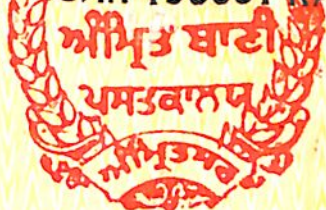 ਅੰਮ੍ਰਿਤ ਬਾਣੀ
ਪਸਤਕਾਲਯ
ਅੰਮ੍ਰਿਤਸਰ